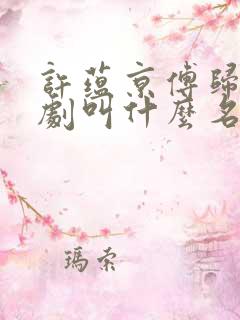 許蘊京傅歸
劇叫什麼名
瑪索